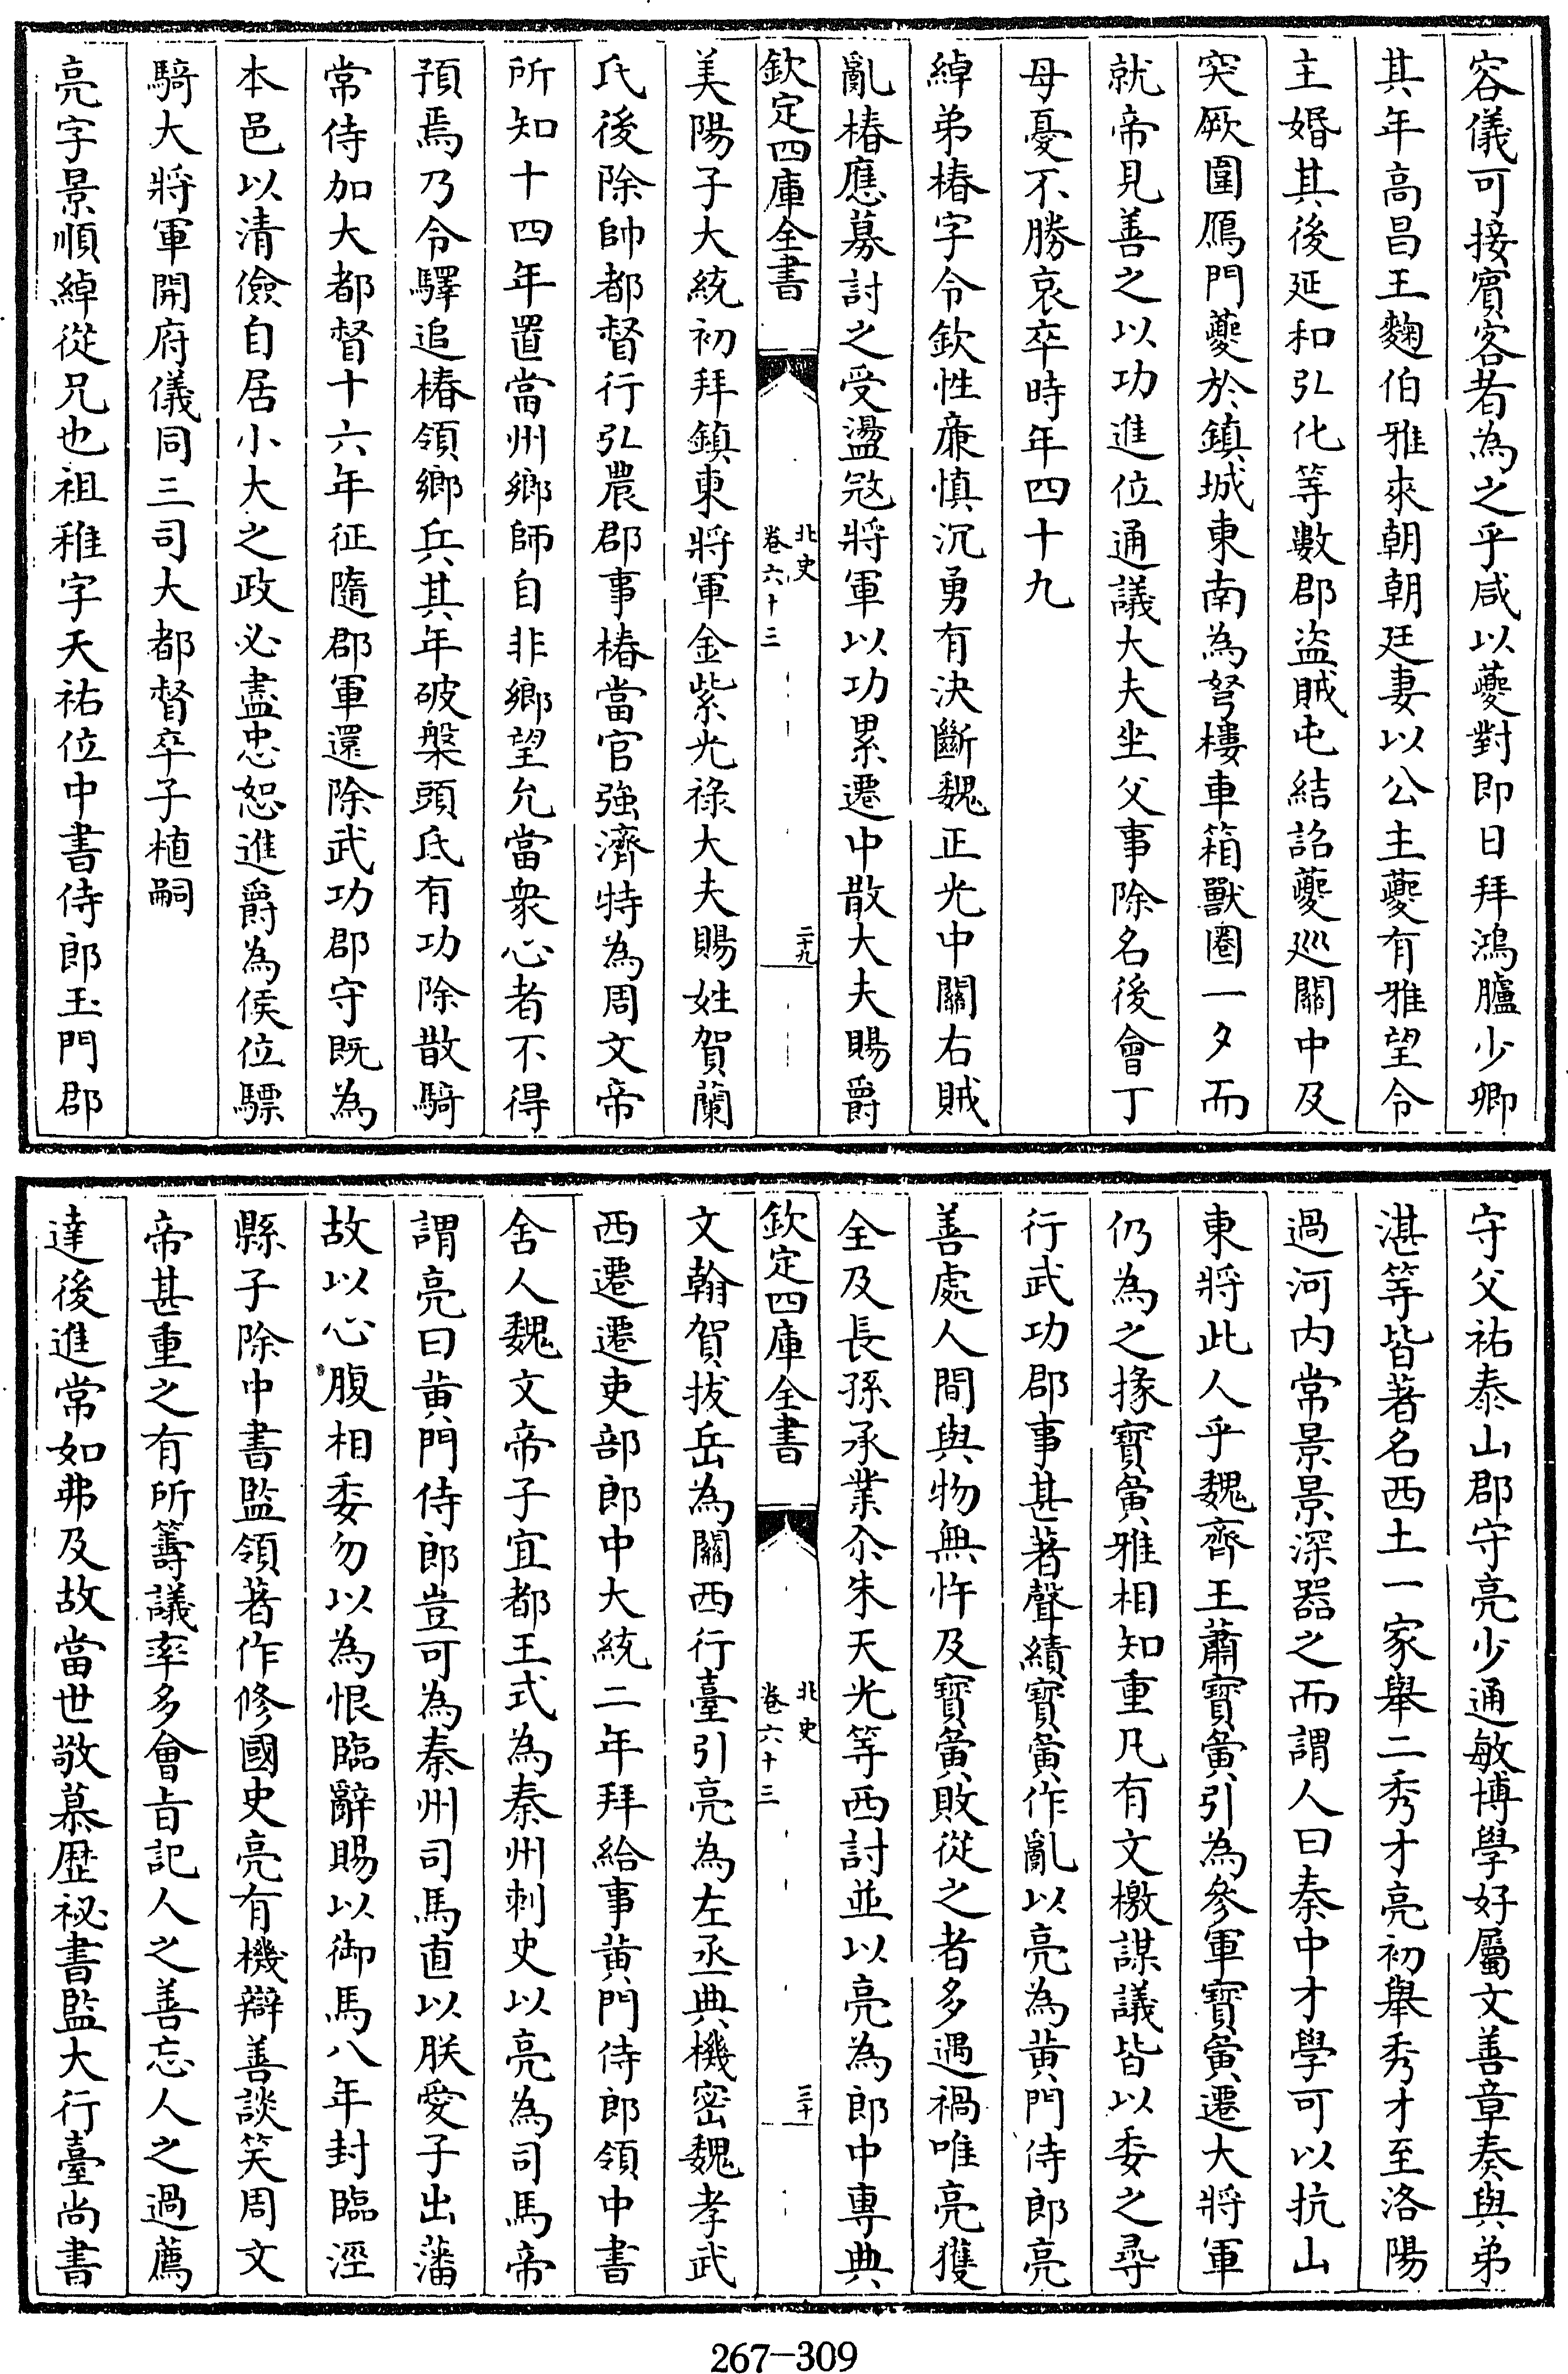 容儀可接賓客者為之乎咸以夔對即日拜鴻臚少卿
其年高昌王麴伯雅來朝朝廷妻以公主夔有雅望令
主婚其後延和弘化等數郡盜賊屯結詔夔巡關中及
突厥圍鴈門夔於鎮城東南為弩樓車箱獸圈一夕而
就帝見善之以功進位通議大夫坐父事除名後會丁
母憂不勝哀卒時年四十九
綽弟椿字令欽性亷慎沉勇有決斷魏正光中關右賊
亂椿應募討之受盪寇將軍以功累遷中散大夫賜爵
欽定四庫全書
北史
卷六十三
二十九
美陽子大統初拜鎮東將軍金紫光祿大夫賜姓賀蘭
氏後除帥都督行弘農郡事椿當官強濟特為周文帝
所知十四年置當州鄉師自非鄉望允當衆心者不得
預焉乃令驛追椿領鄉兵其年破槃頭氐有功除散騎
常侍加大都督十六年征隨郡軍還除武功郡守既為
本邑以清儉自居小大之政必盡忠恕進爵為侯位驃
騎大將軍開府儀同三司大都督卒子植嗣
亮字景順綽從兄也祖稚字天祐位中書侍郎玉門郡
守父祐泰山郡守亮少通敏博學好屬文善章奏與弟
湛等皆著名西土一家舉二秀才亮初舉秀才至洛陽
過河内常景景深器之而謂人曰秦中才學可以抗山
東將此人乎魏齊王蕭寶夤引為參軍寶夤遷大將軍
仍為之掾寶夤雅相知重凡有文檄謀議皆以委之尋
行武功郡事甚著聲績寶夤作亂以亮為黄門侍郎亮
善處人間與物無忤及寶夤敗從之者多遇禍唯亮獲
全及長孫承業尒朱天光等西討並以亮為郎中專典
欽定四庫全書
北史
卷六十三
三十
文翰賀拔岳為關西行臺引亮為左丞典機密魏孝武
西遷遷吏部郎中大統二年拜給事黄門侍郎領中書
舍人魏文帝子宜都王式為秦州刺史以亮為司馬帝
謂亮曰黄門侍郎豈可為秦州司馬直以朕愛子出藩
故以心腹相委勿以為恨臨辭賜以御馬八年封臨涇
縣子除中書監領著作修國史亮有機辯善談笑周文
帝甚重之有所籌議率多會旨記人之善忘人之過薦
達後進常如弗及故當世敬慕歴祕書監大行臺尚書
267-309